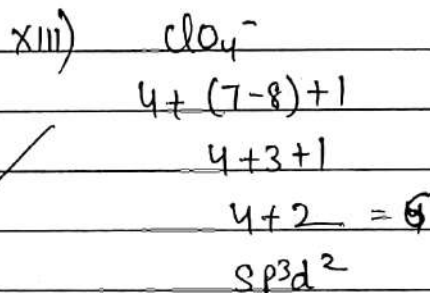 XIII) ClO4⁻
4+ (7-8)+1
4+3+1
4+2 =
SP³d²